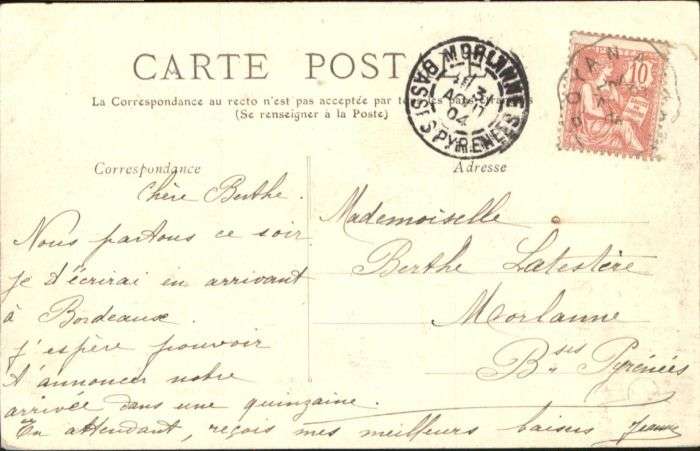 CARTE POSTALE
La Correspondance au recto n'est pas acceptée par tous les pays étrangers
(Se renseigner à la Poste)
MORLANNE
31
AOUT
04
BASSES PYRENEES
ROYAN
10
Correspondance
Adresse
Chère Berthe.
Nous partons ce soir
je t'écrirai en arrivant
à Bordeaux.
j'espère pouvoir
t'annoncer notre
arrivée dans une quinzaine.
En attendant, reçois mes meilleurs baisers Jeanne
Mademoiselle
Berthe Latestère
Morlanne
B.ses Pyrénées